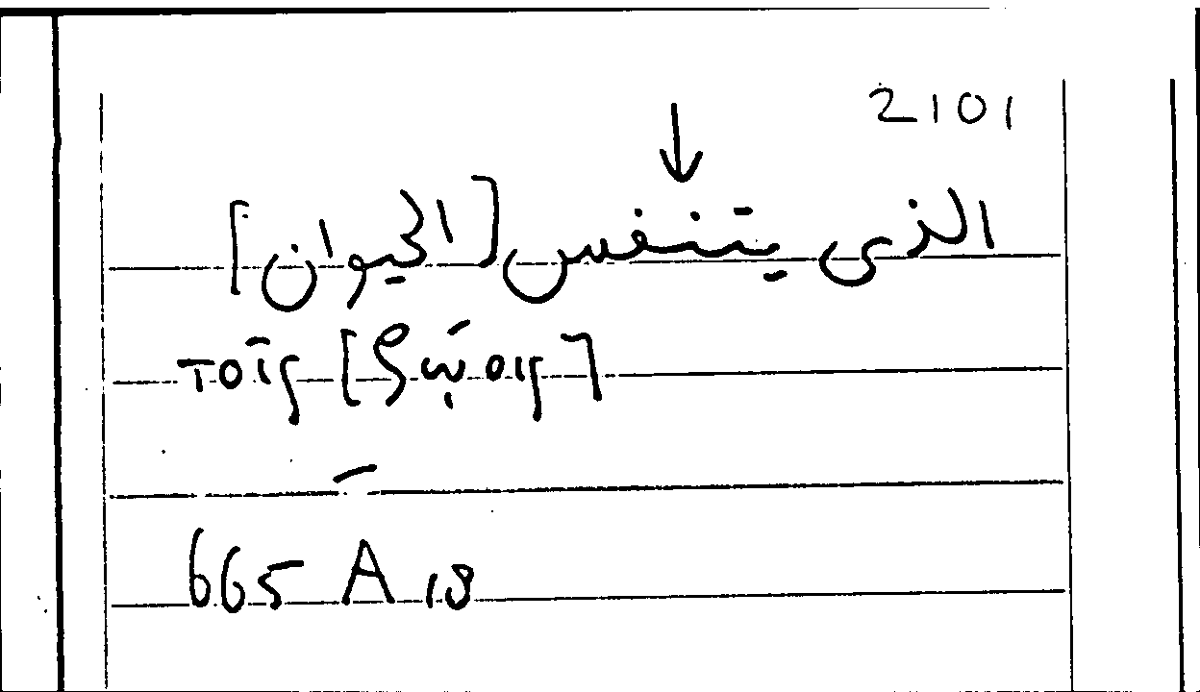 2101
↓
الذى يتنفس [الحيوان]
τοῖς [ζῴοις]
–
665 A 18